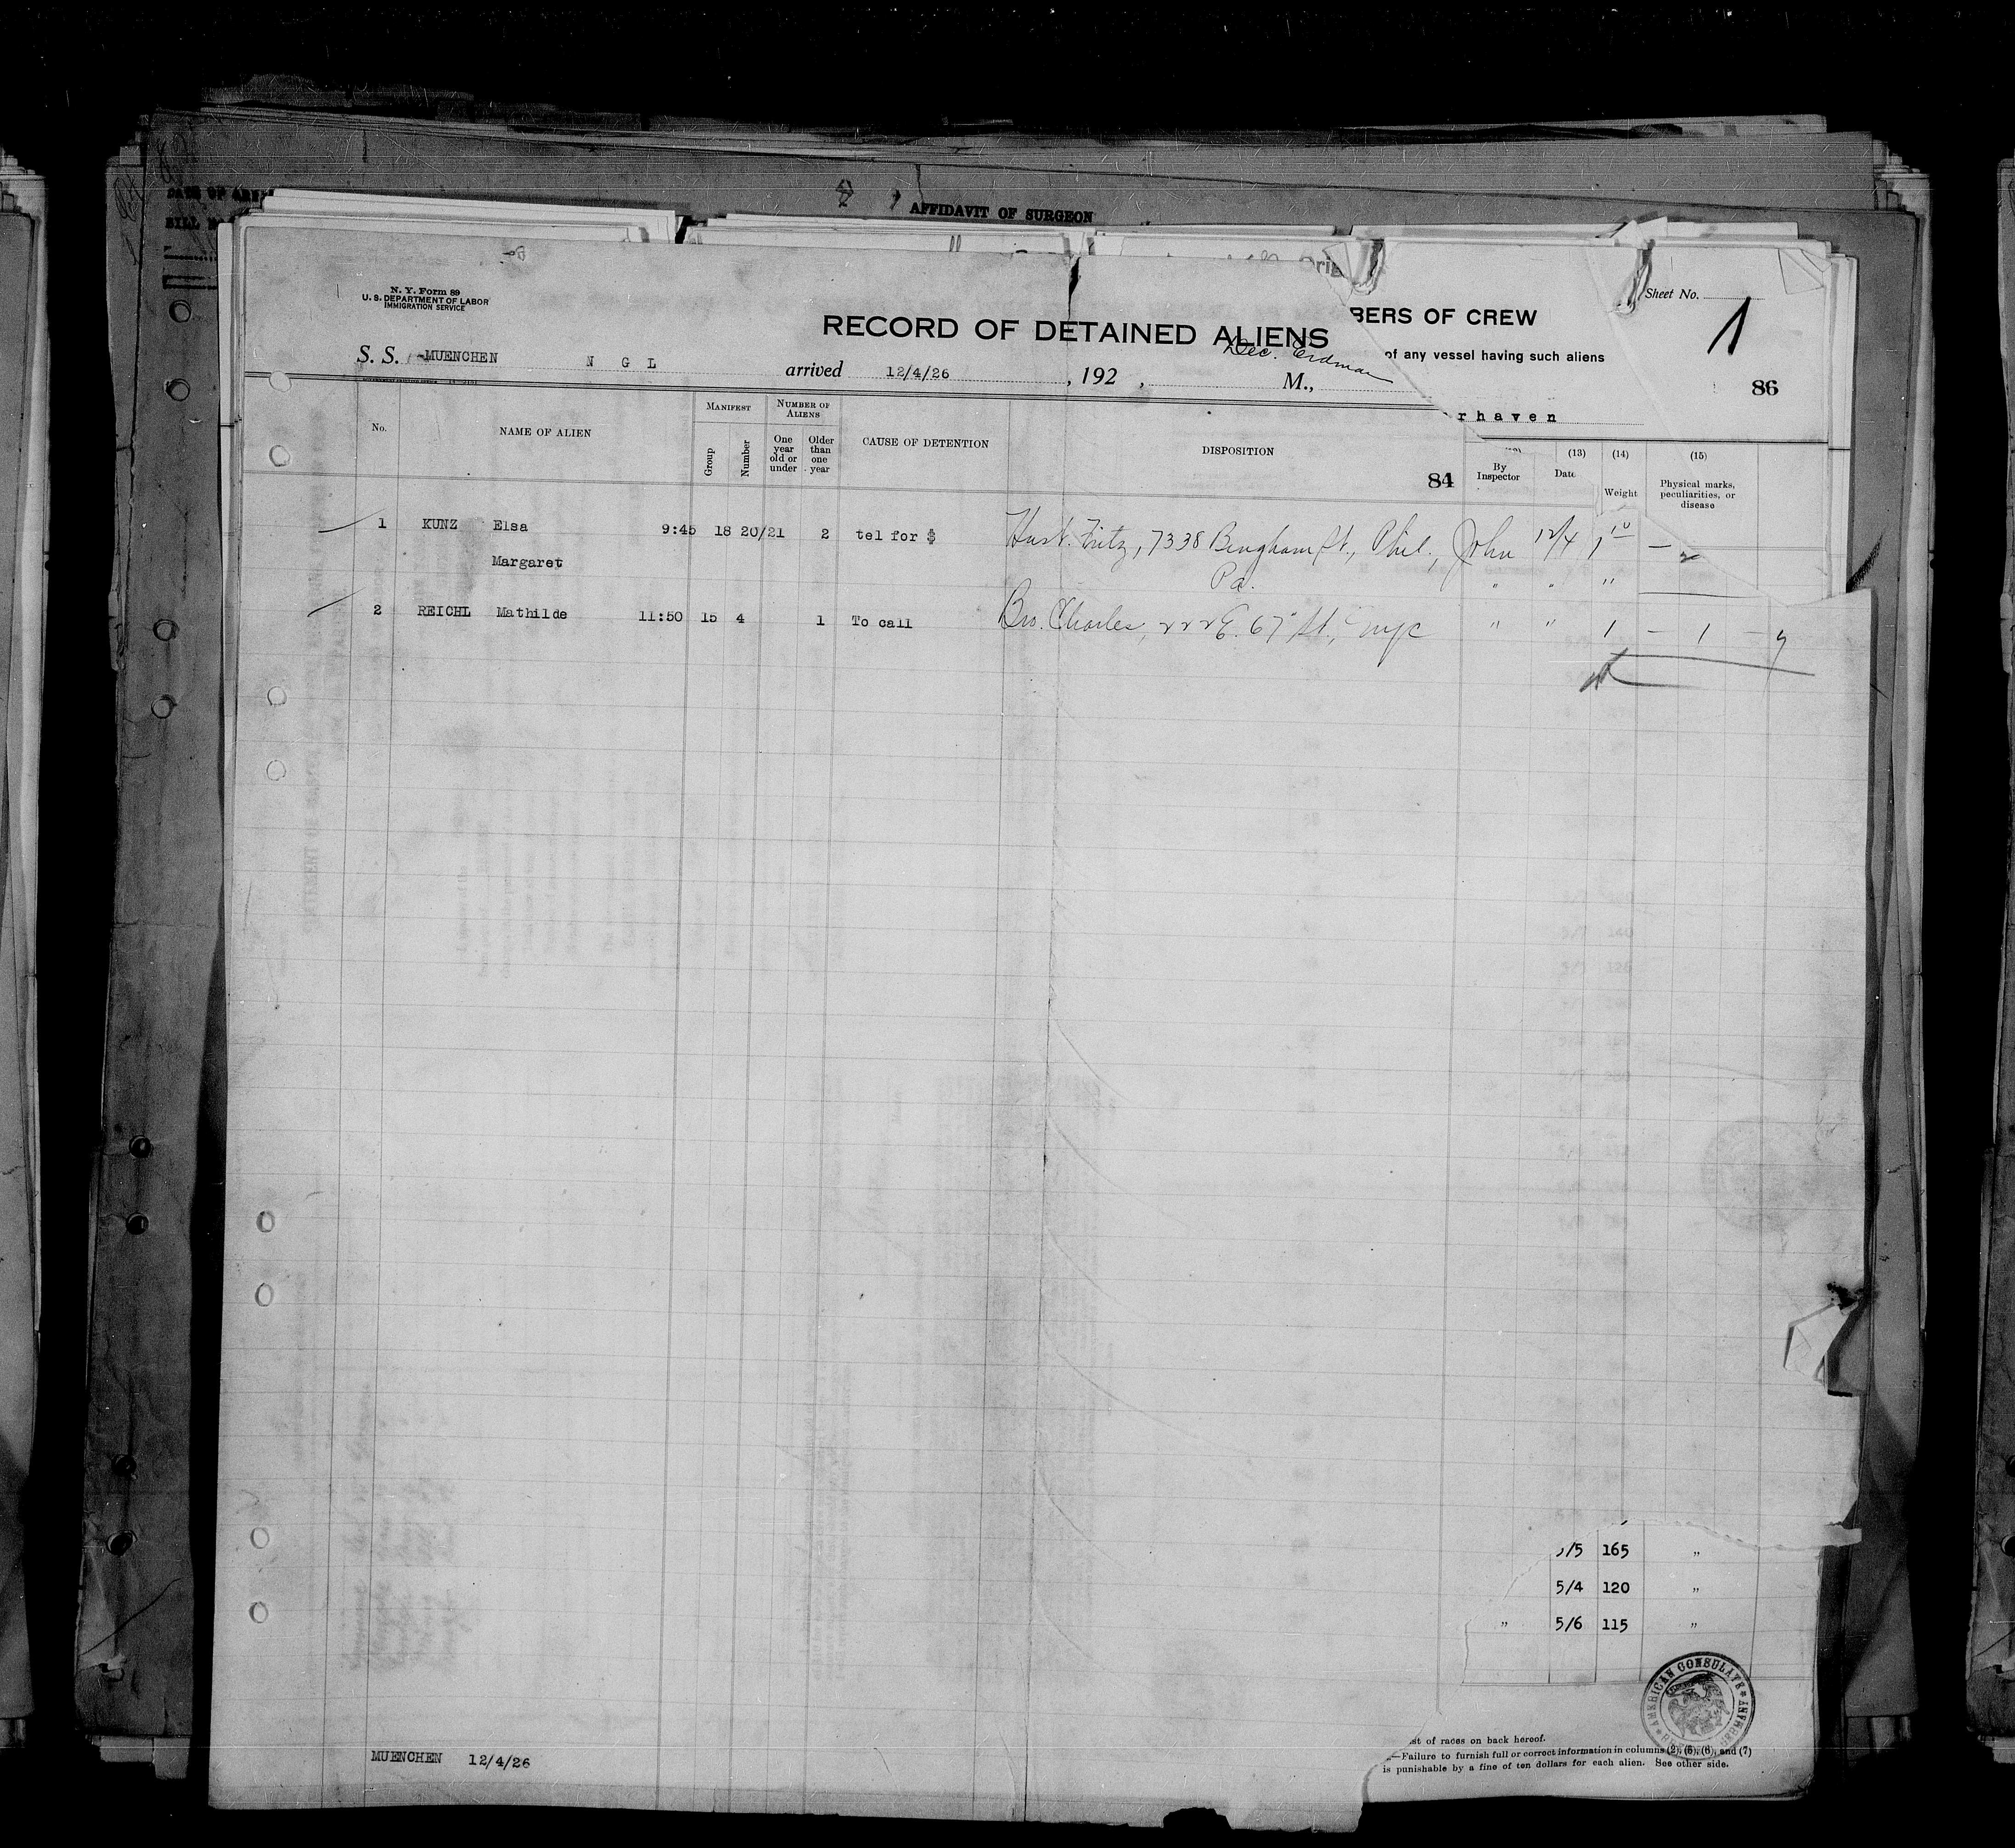 AFFIDAVIT OF SURGEON
N. Y. Form 89
U. S. DEPARTMENT OF LABOR
IMMIGRATION SERVICE
Sheet No.
1
RECORD OF DETAINED ALIENS
BERS OF CREW
of any vessel having such aliens
S. S. MUENCHEN N G L arrived 12/4/26, 192 , M.,
Dec. Erdman
86
rhaven
No.
NAME OF ALIEN
MANIFEST
Group
Number
NUMBER OF ALIENS
One year old or under
Older than one year
CAUSE OF DETENTION
DISPOSITION
84
By Inspector
(13)
Date
(14)
Weight
(15)
Physical marks, peculiarities, or disease
1 KUNZ Elsa 9:45 18 20/21 2 tel for $ Husb. Fritz, 7338 Bingham St., Phil., John 12/4 1
Margaret Pa. " " "
2 REICHL Mathilde 11:50 15 4 1 To call Bro. Charles, 222 E. 67" St., NYC " " 1 – 1 –
/5 165 "
5/4 120 "
" 5/6 115 "
AMERICAN CONSULATE
st of races on back hereof.
—Failure to furnish full or correct information in columns (2), (5), (6), and (7)
is punishable by a fine of ten dollars for each alien. See other side.
MUENCHEN 12/4/26